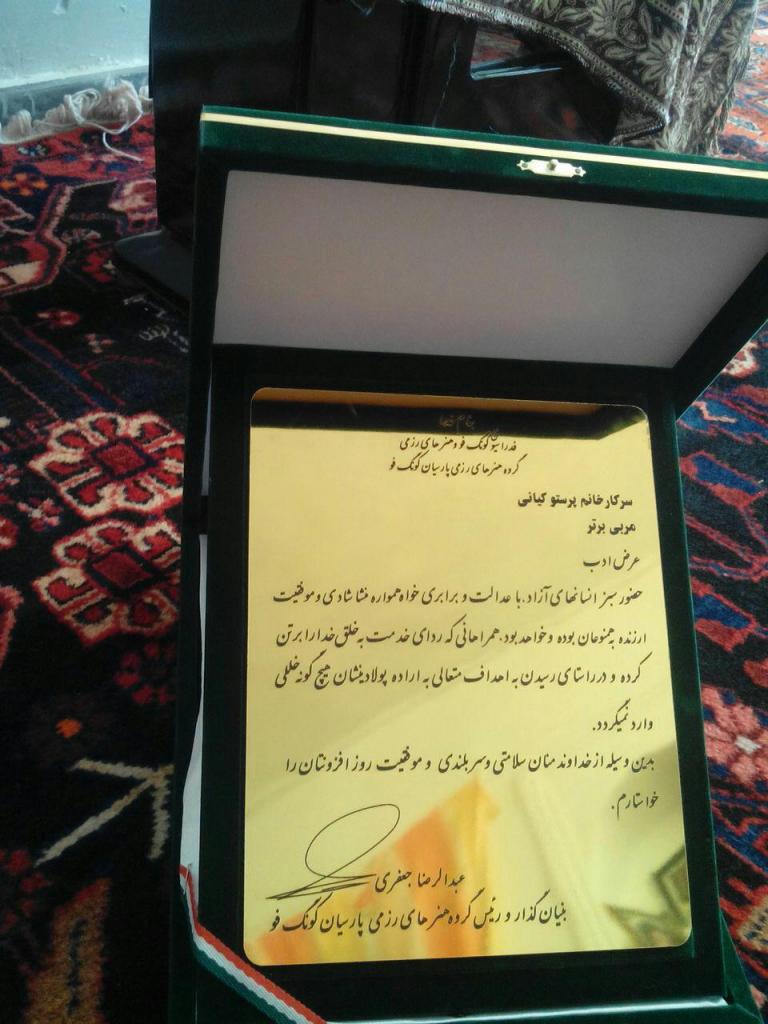 بنام خدا
فدراسیون کونگ فو و هنرهای رزمی
گروه هنرهای رزمی پارسیان کونگ فو
سرکار خانم پرستو کیانی
مربی برتر
عرض ادب
حضور سبز انسانهای آزاد، با عدالت و برابری خواه همواره منشا شادی و موفقیت
ارزنده همنوعان بوده و خواهد بود، همراهانی که ردای خدمت به خلق خدا را برتن
کرده و درراستای رسیدن به اهداف متعالی به اراده پولادینشان هیچ گونه خللی
وارد نمیگردد.
بدین وسیله از خداوند منان سلامتی وسربلندی و موفقیت روز افزونتان را
خواستارم.
عبدالرضا جعفری
بنیان گذار و رئیس گروه هنرهای رزمی پارسیان کونگ فو